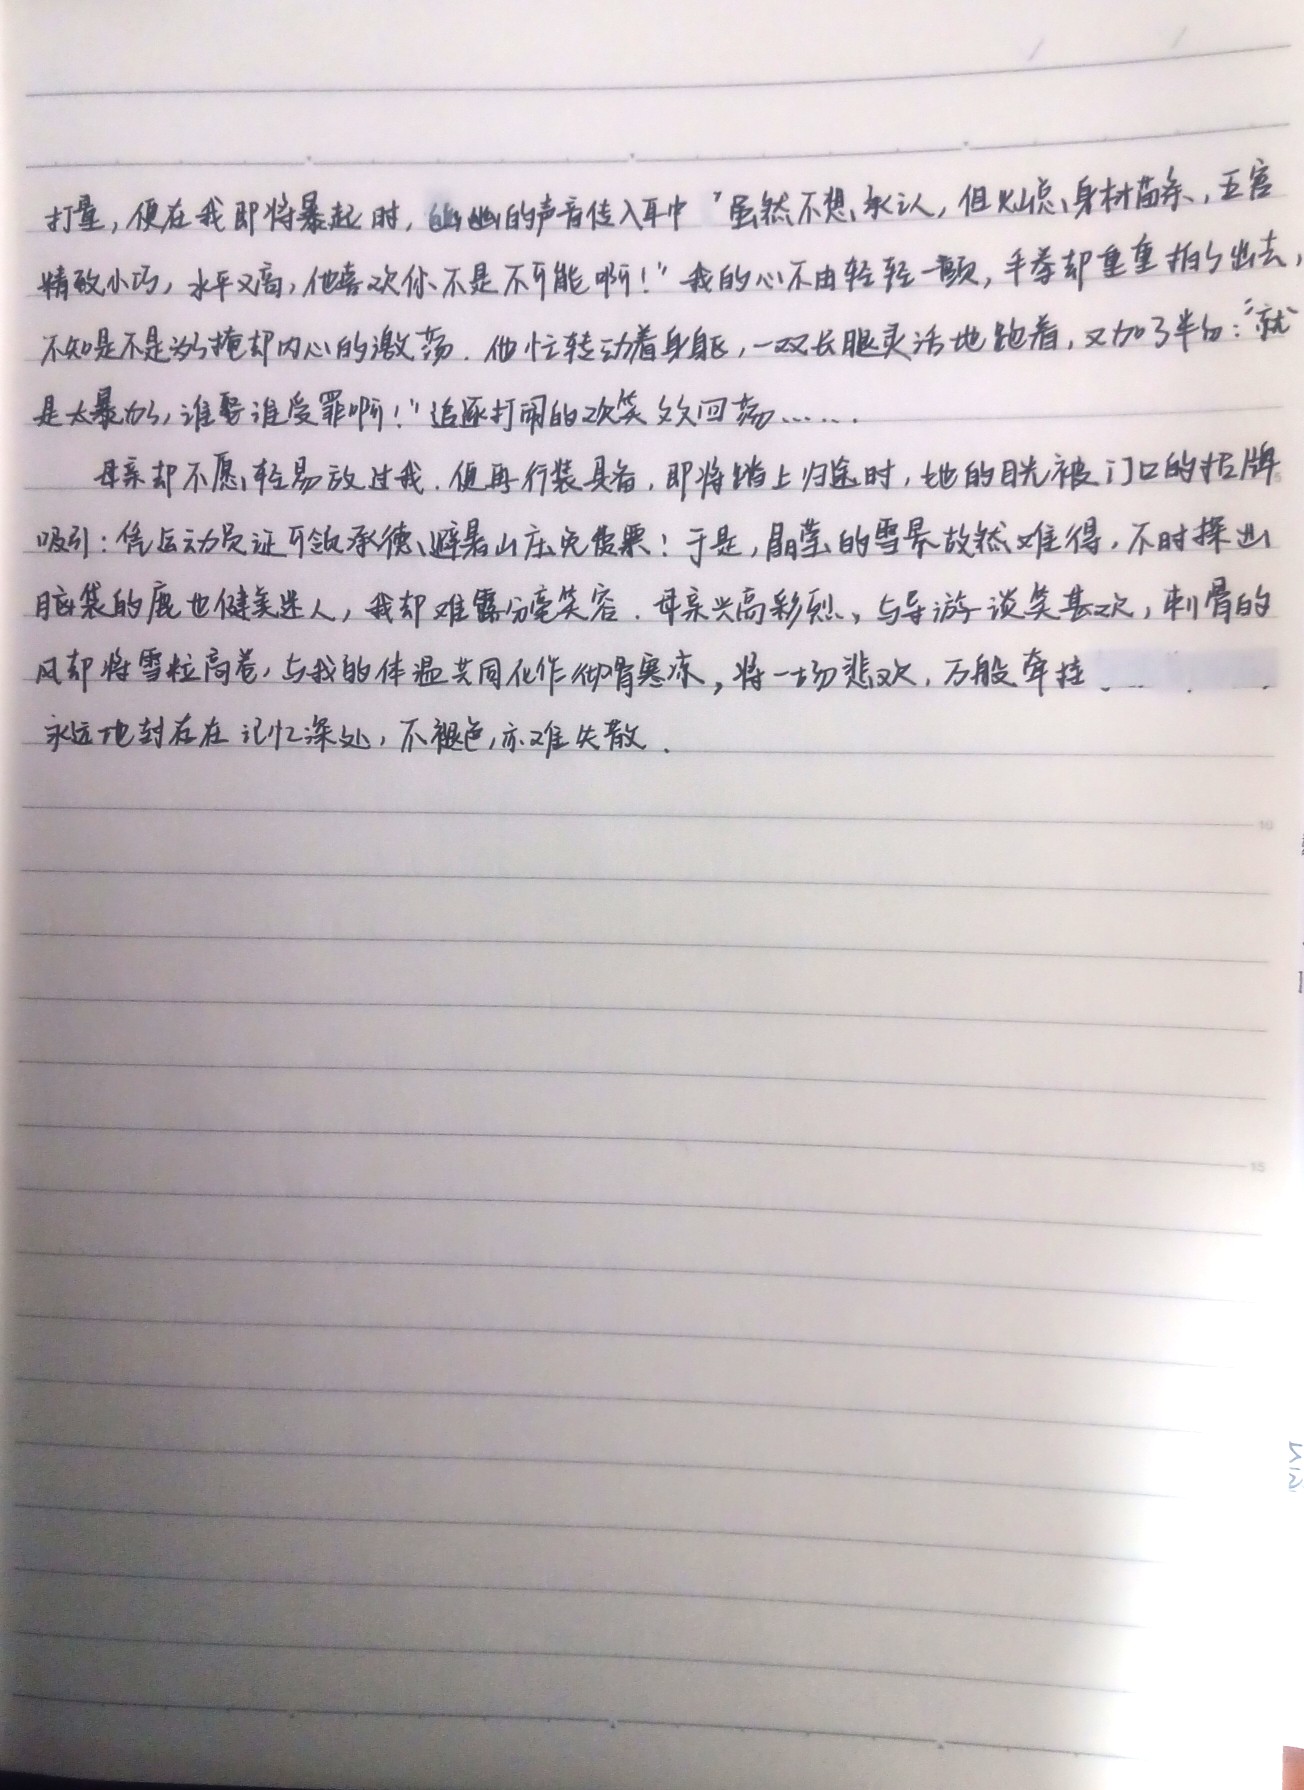 打量，便在我即将暴起时，幽幽的声音传入耳中“虽然不想承认，但灿总身材苗条，五官
精致小巧，水平又高，他喜欢你不是不可能啊！”我的心不由轻轻一颤，手拳却重重拍了出去，
不知是不是为了掩却内心的激荡．他忙转动着身躯，一双长腿灵活地跑着，又加了半句：“就
是太暴力了，谁娶谁受罪啊！”追逐打闹的欢笑久久回荡……
母亲却不愿轻易放过我．便再行装具备，即将踏上归途时，她的目光被门口的招牌
吸引：凭运动员证可领承德避暑山庄免费票！于是，晶莹的雪景故然难得，不时探出
脑袋的鹿也健美迷人，我却难露分毫笑容．母亲兴高彩烈，与导游谈笑甚欢，刺骨的
风却将雪粒高卷，与我的体温共同化作彻骨寒冻，将一场悲欢，万般牵挂
永远地封存在记忆深处，不褪色，亦难失散．